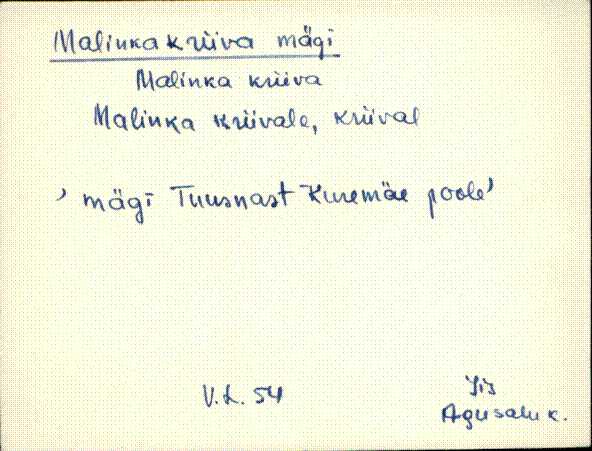 Malinkakriiva mägi
Malinka kriiva
Malinka kriivale, kriival
’ mägi Tuusnast Kuremäe poole’
V.L. 54
Jis
Agusalu k.